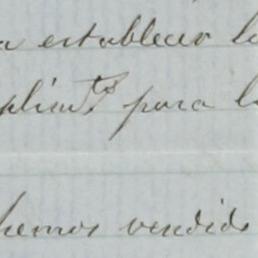 a establecer l
plim.ts para l
hemos vendido